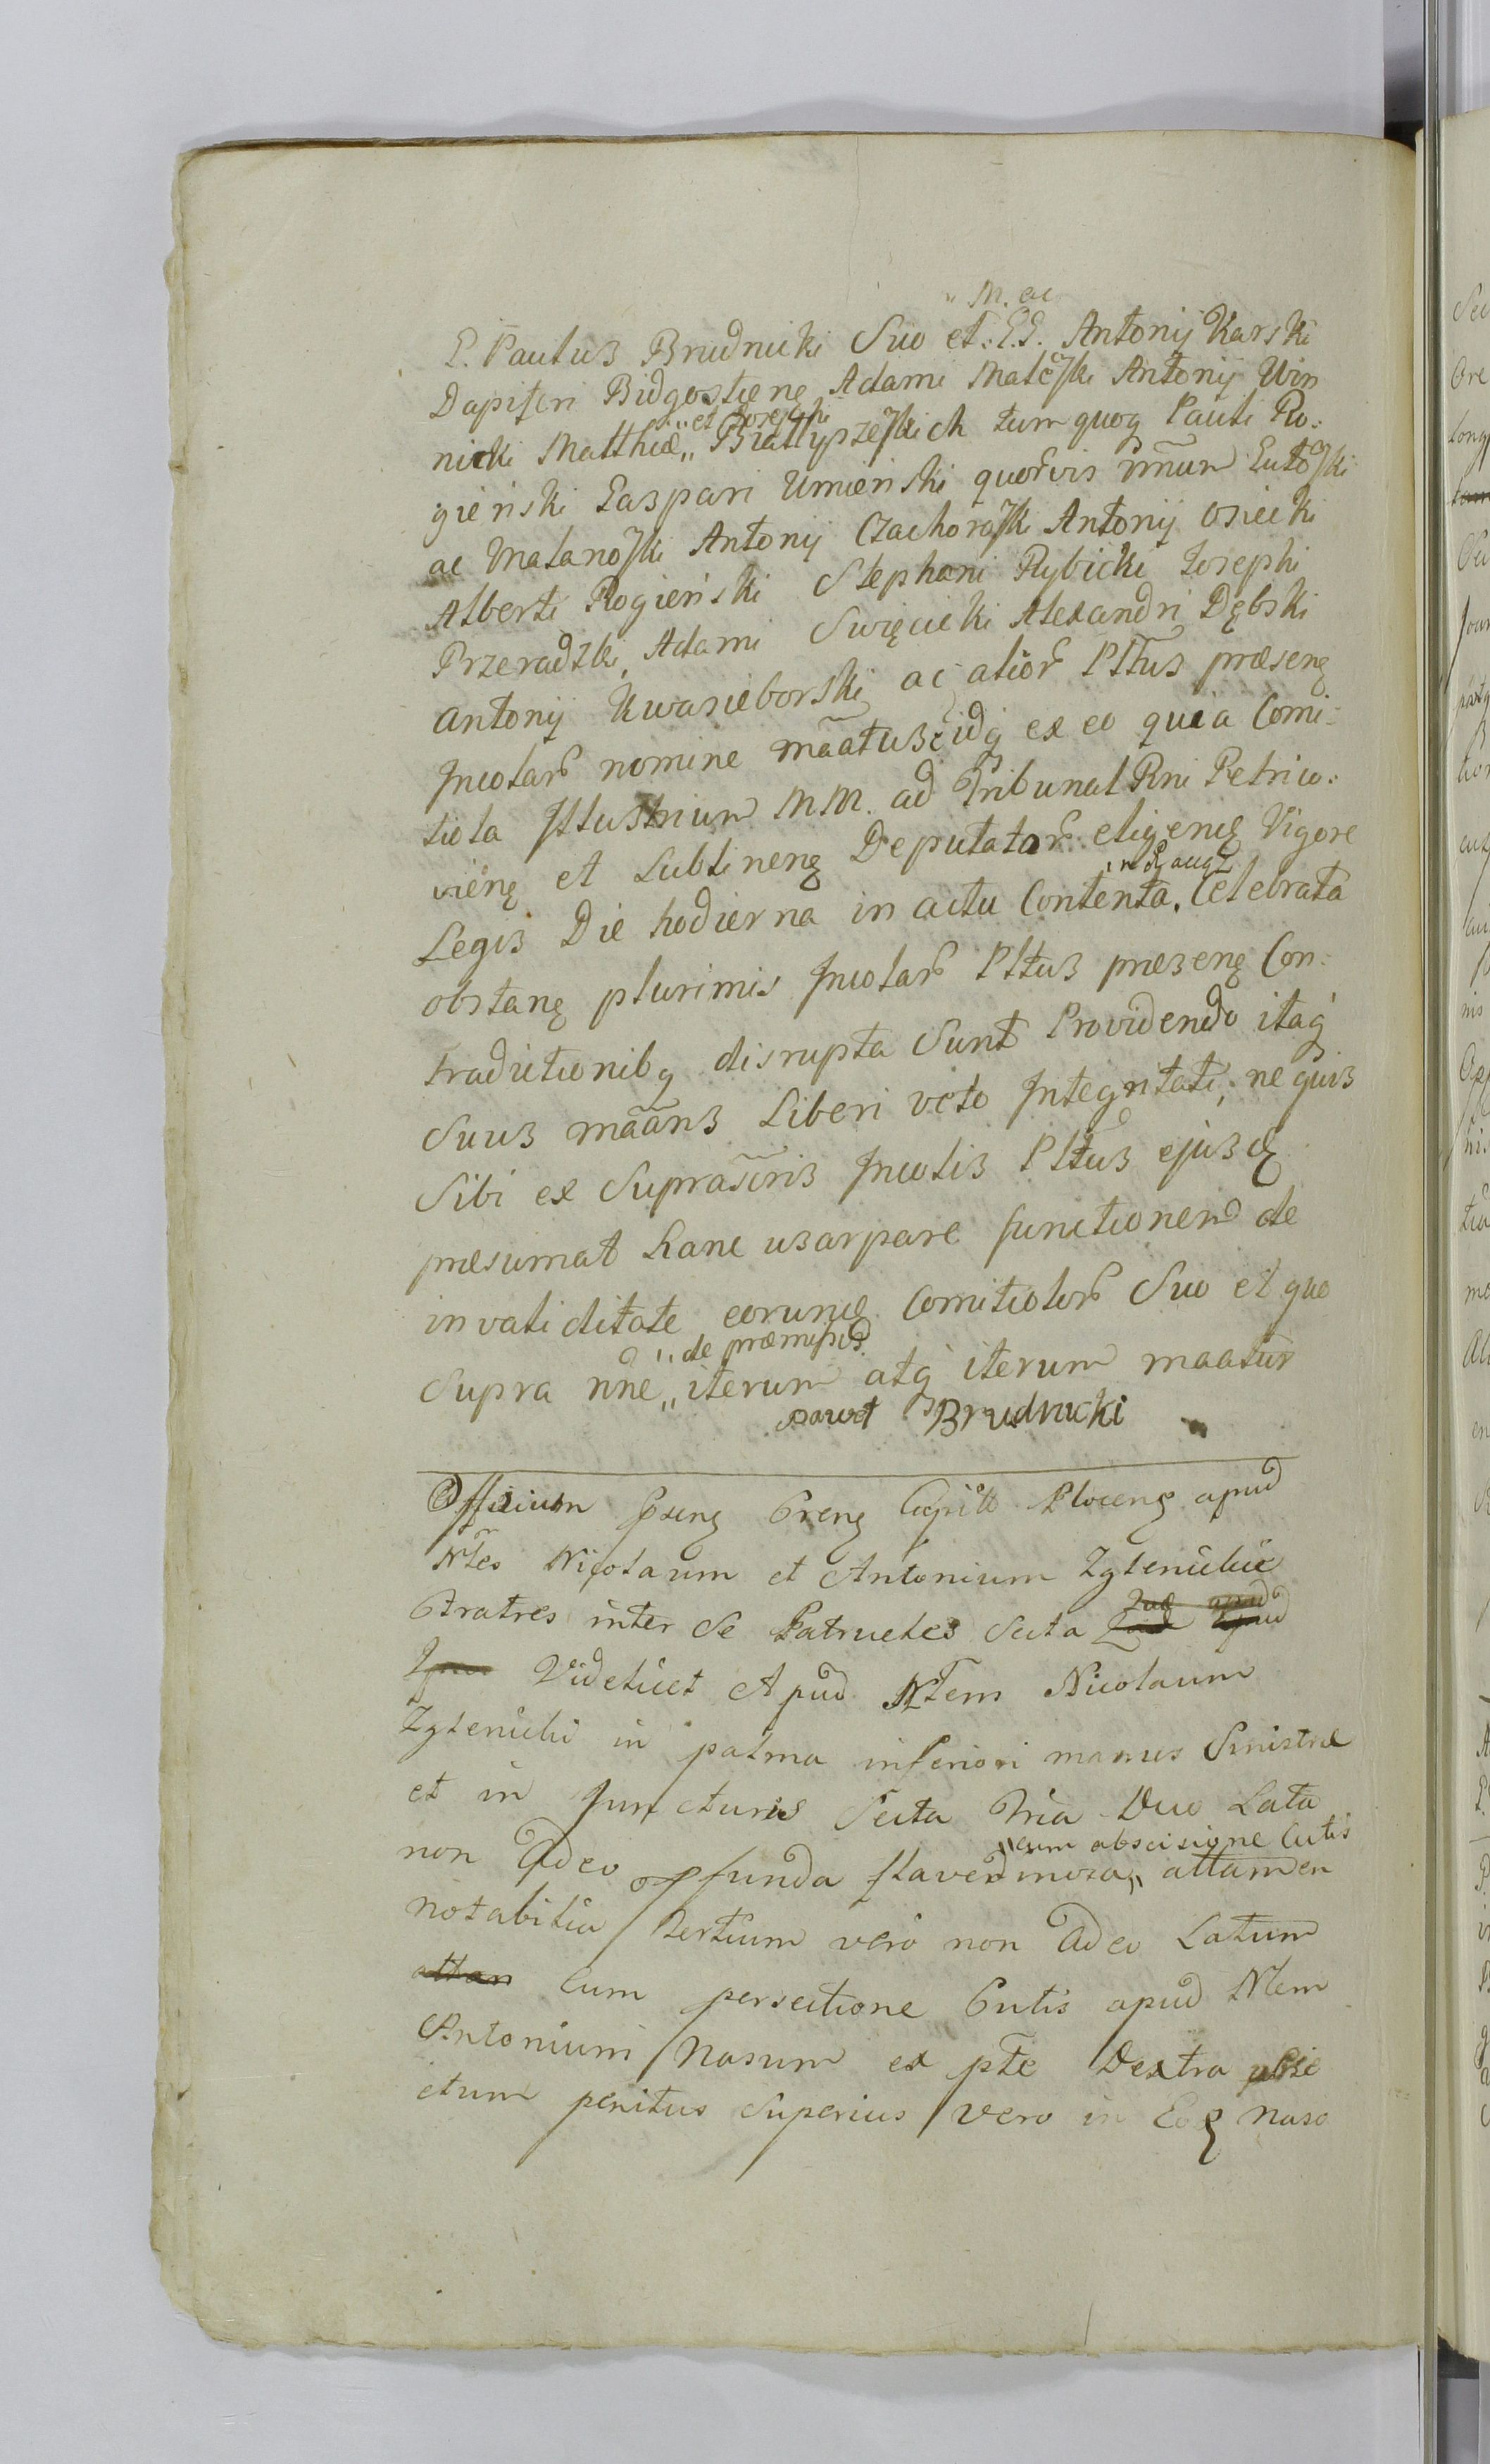 „ M. ac
G. Paulus Brudnicki Suo et G.G. Antonij Karski
Dapiferi Bidgostieng Adami Malewski Antonij Win
„et Josephi
nicki Matthiæ „ Białłyszewskich tum quoq Pauli Ro:
gieński Caspari Umieński quorvis nnum Lutowski
ac Malanowski Antonij Czachorowski Antonij Osiecki
Alberti Rogieński Stephani Rybicki Josephi
Przeradzki, Adami Święcicki Alexandri Dębski
Antonij Kwasieborski ac alior Pltus præsenę
Incolar nomine mãatus idq ex eo quia Comi:
tiola Illustrium MM. ad Tribunal Rni Petrico:
vienę et Lublinenę Deputator eligendę Vigore
Legis Die hodierna in actu Contenta Celebrata
obstanę plurimis Incolar Pltus præsenę Con:
tradictionibq disrupta Sunt Providendo itaq
Suus mãans Liberi veto Integritati, ne quis
Sibi ex Suprascris Incolis Pltus ejusdę
præsumat hanc usurpare functionem de
invaliditate eorundę Comitiolor Suo et quo
„ de præmissis
Supra nne „ iterum atq iterum maatur
Paweł Brudnicki
Officium Cieng Płoceng apud
Nles Nicolaum et Antonium Zglenickie
Fratres inter Se Patrueles Secta
Videlicet Apud Nlem Nicolaum
Zglenicki in palma inferiori manus Sinistræ
et in Juncturis Secta Tria Duo Lata
„cum abscisione Cutis
non Adeo pfunda flavedinosa „ attamen
notabilia Tertium vero non Adeo Latum
attan Cum persectione Cutis apud Nlem
Antonium Nasum ex pte Dextra
ctum penitus Superius vero in Eodę Naso